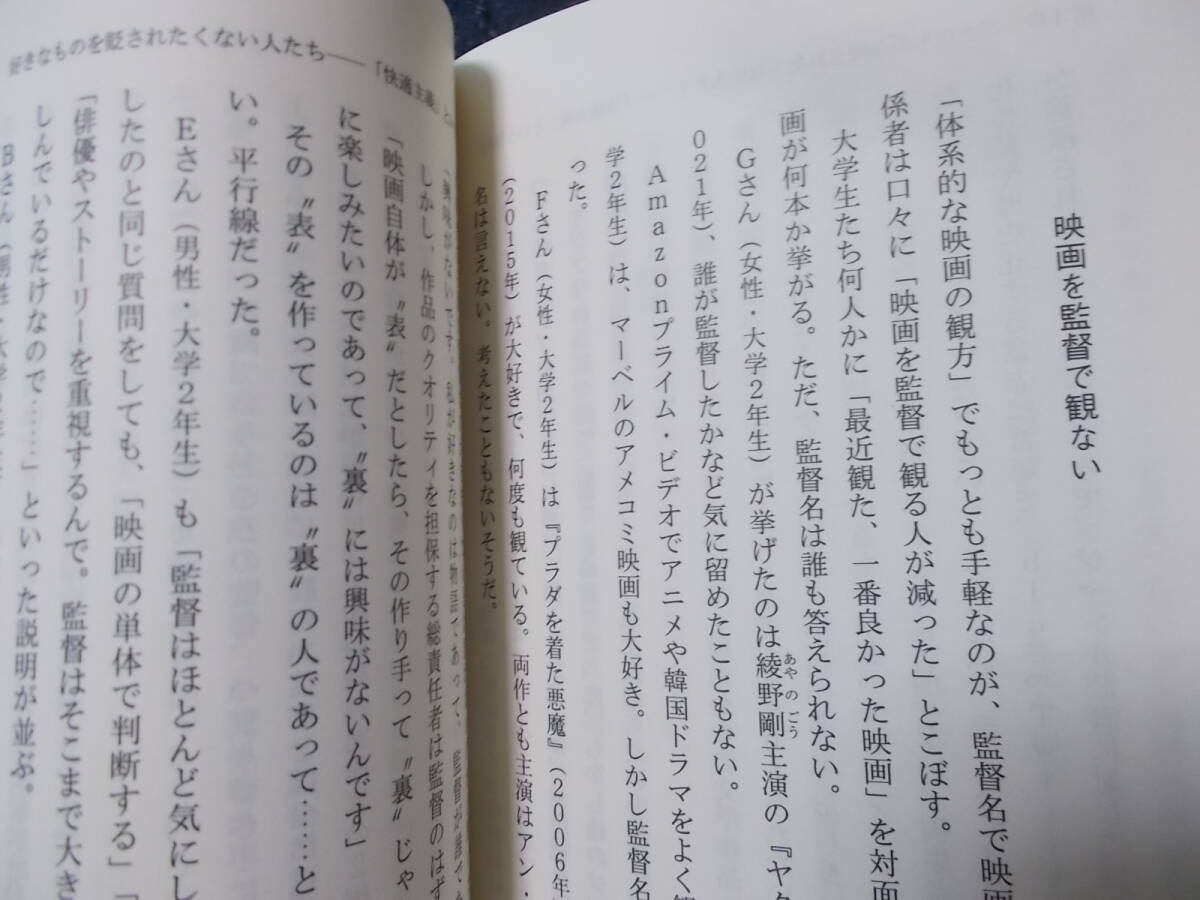 映画を監督で観ない
「体系的な映画の観方」でもっとも手軽なのが、監督名で映
係者は口々に「映画を監督で観る人が減った」とこぼす。
大学生たち何人かに「最近観た、一番良かった映画」を対面
画が何本か挙がる。ただ、監督名は誰も答えられない。
Gさん（女性・大学2年生）が挙げたのは綾野剛主演の『ヤク
あやの ごう
021年）、誰が監督したかなど気に留めたこともない。
Amazonプライム・ビデオでアニメや韓国ドラマをよく
学2年生）は、マーベルのアメコミ映画も大好き。しかし監督名
った。
Fさん（女性・大学2年生）は『プラダを着た悪魔』（2006年
（2015年）が大好きで、何度も観ている。両作とも主演はアン・
名は言えない。考えたこともないそうだ。
好きなものを貶されたくない人たち――「快適主義」と
「興味がないです。私が好きなのは物語であって、監督が誰で
しかし、作品のクオリティを担保する総責任者は監督のはず
「映画自体が〝表〟だとしたら、その作り手って〝裏〟じゃ
に楽しみたいのであって、〝裏〟には興味がないんです」
その〝表〟を作っているのは〝裏〟の人であって……と
い。平行線だった。
Eさん（男性・大学2年生）も「監督はほとんど気にし
したのと同じ質問をしても、「映画の単体で判断する」「
「俳優やストーリーを重視するんで。監督はそこまで大き
しんでいるだけなので……」といった説明が並ぶ。
Bさん（男性・大学2年生